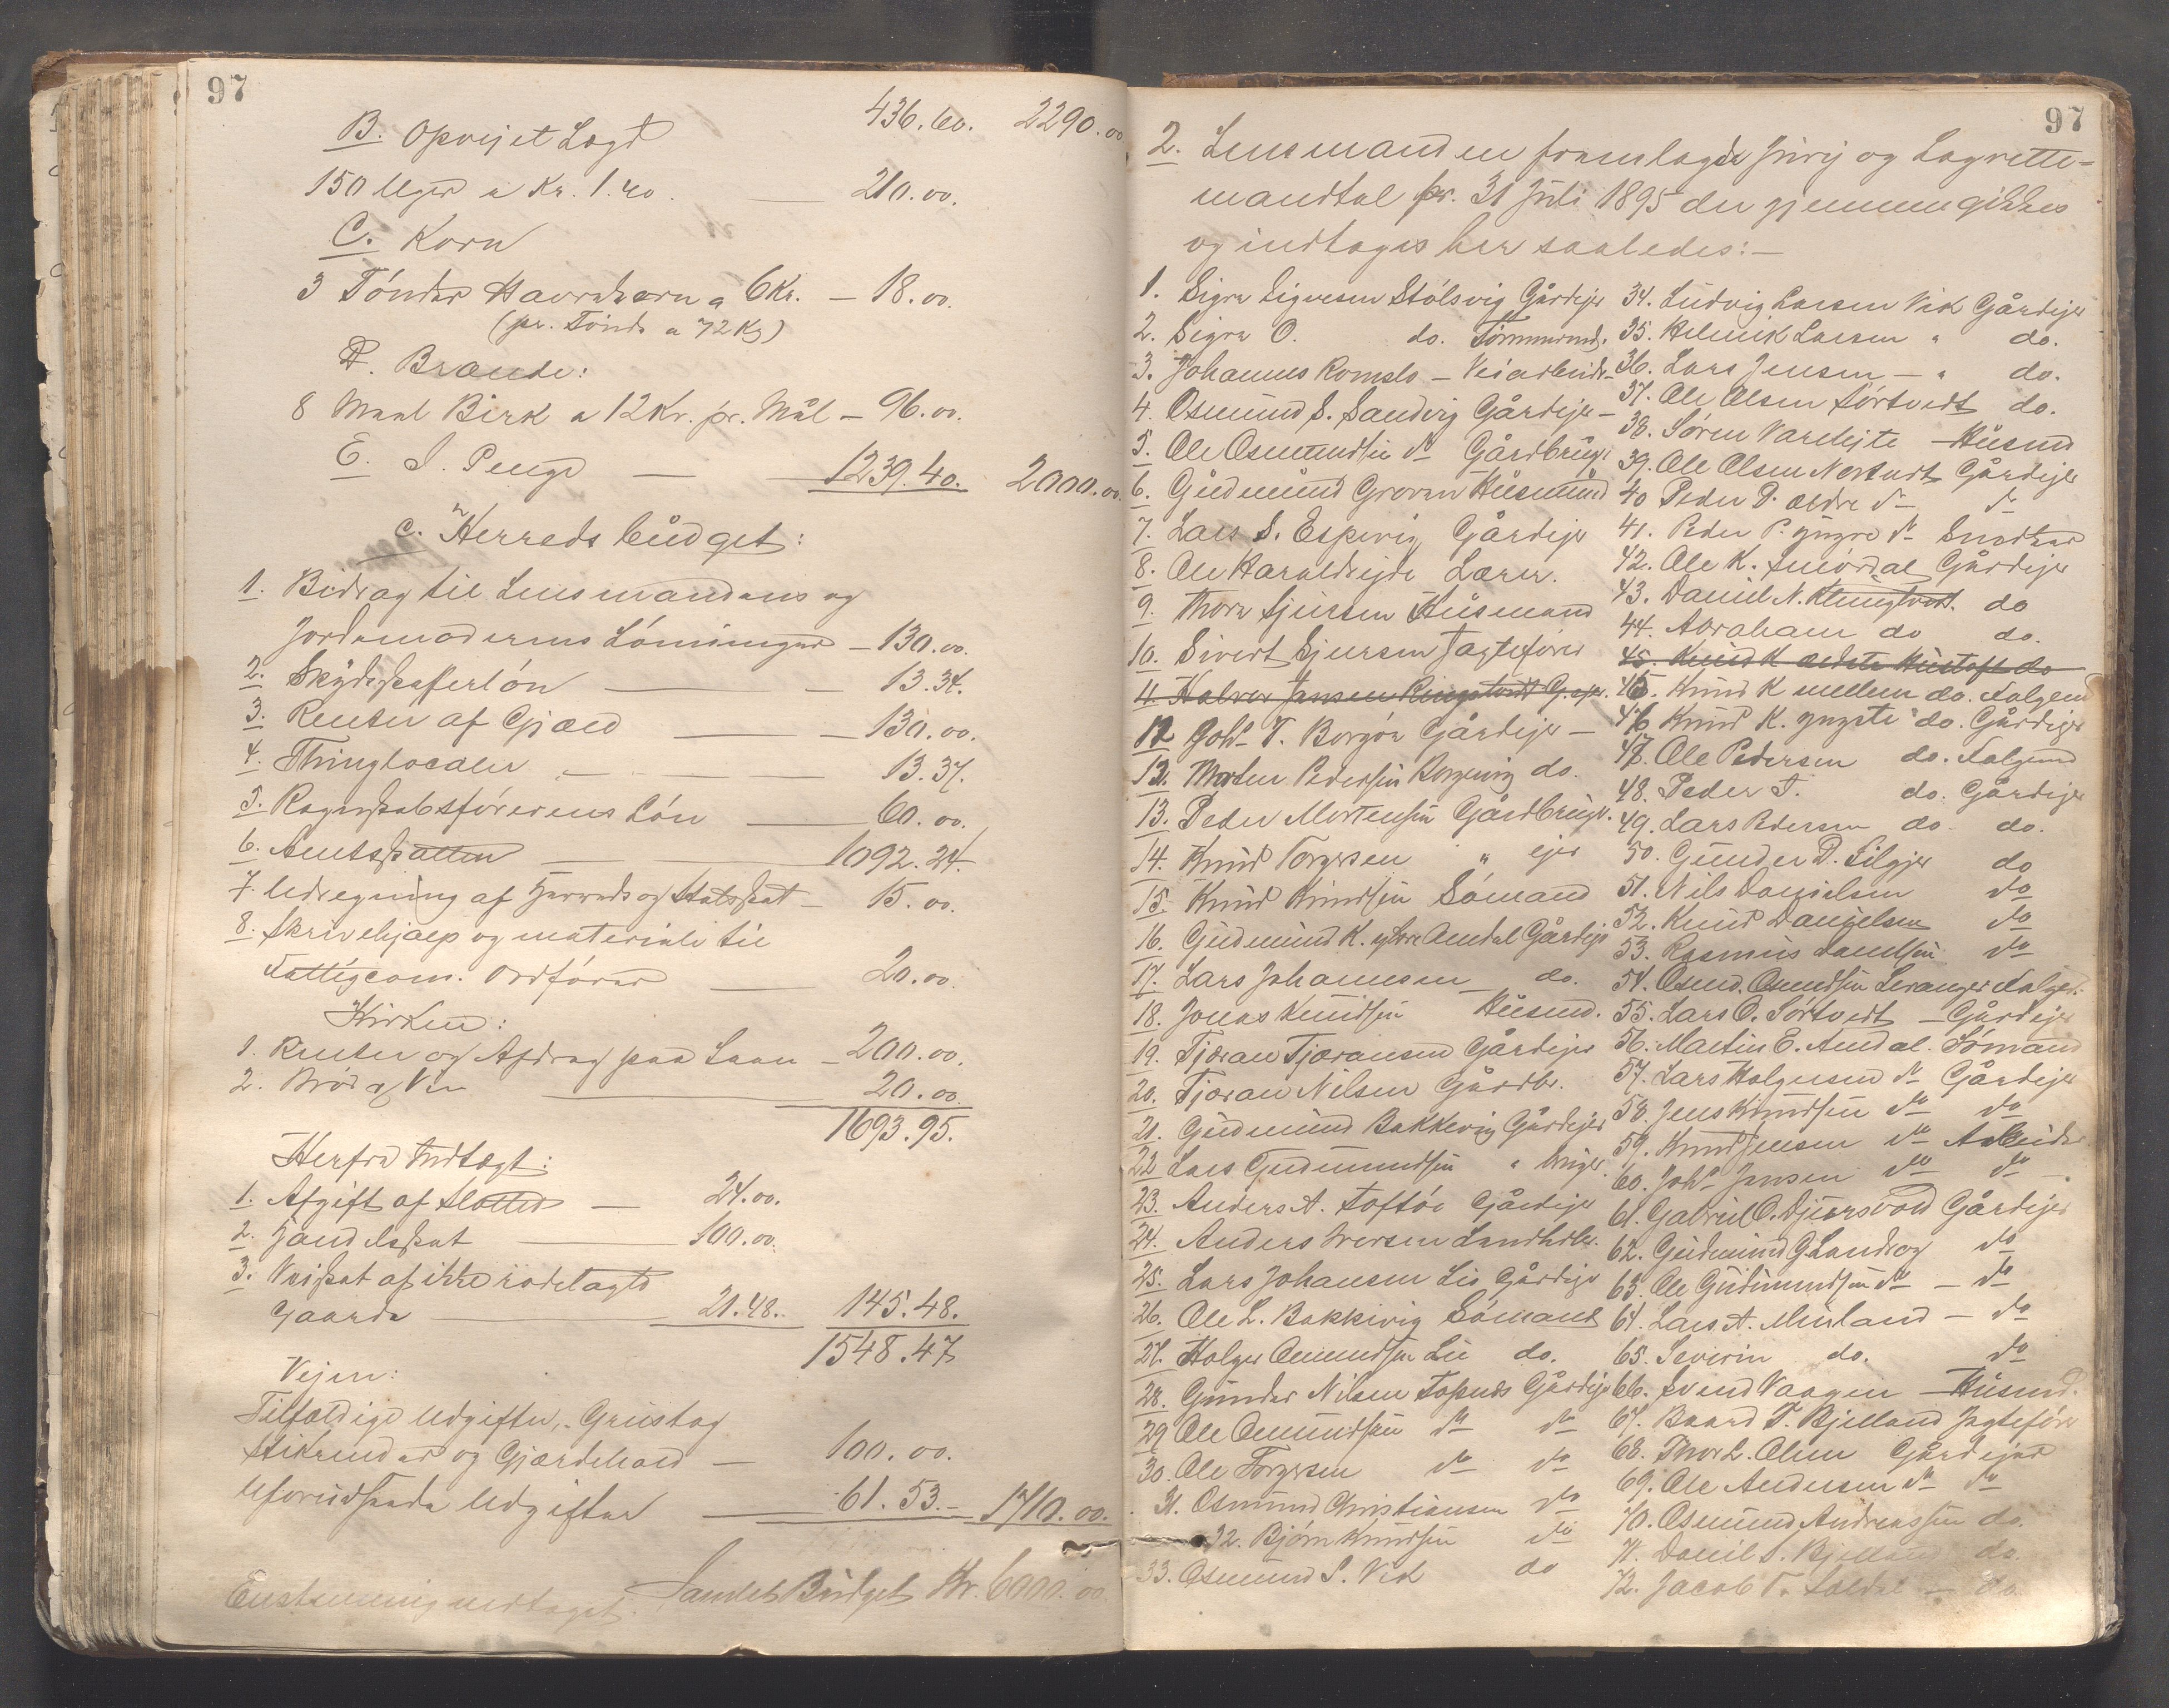 97
436.60. 2290.00
B. Opvejet Lagd
150 Uger a Kr. 1.40. — 210.00.
C. Korn
3 Tónder Havrekorn a 6 Kr. — 18.00.
(pr. Tónde a 72 Kg)
D. Brænde:
8 Maal Birk a 12 Kr. pr. Mål — 96.00.
E. I Penge — 1239.40. 2000.00.
c. Herredsbudget:
1. Bidrag til Lensmandens og
Jordemoderens Lónninger — 130.00.
2. Skydsskaferlón — 13.34.
3. Renter af Gjæld — 130.00.
4. Thinglocaler — 13.37.
5. Regnskabsfórerens Lón — 60.00.
6. Amtsskatten — 1092.24.
7. Udregning af Herreds og Statsskat — 15.00.
8. Skrivehjælp og materiale til
Fattigcom. Ordfórer — 20.00.
Kirken:
1. Renter og Afdrag paa Laan — 200.00.
2. Bród og Vin — 20.00.
1693.95.
Herfra Indtægt:
1. Afgift af Slotted — 24.00.
2. Handelsskat — 100.00.
3. Veiskat af ikke rodelagte
Gaarde — 21.48. 145.48.
1548.47
Vejen:
Tilfældige Udgifter, Grustag
Stikrender og Gjærdehold — 100.00.
Uforudseede Udgifter — 61.53. — 1710.00.
Samlet Budget Kr. 6000.00.
Enstemmig vedtaget.
97
2. Lensmanden fremlagde Jury og Lagrette-
mandtal pr. 31 Juli 1895 der gjennemgikkes
og indtages her saaledes:—
1. Sigve Sigvesen Stólsvig Gårdejer
2. Sigve O. do. Tómmermd.
3. Johannes Romslo — Veiarbeid.
4. Osmund S. Sandvig Gårdejer —
5. Ole Osmundsen do Gårdbruger
6. Gudmund Grovan Húsmand
7. Lars S. Espevig Gårdejer
8. Ole Haraldsejde Lærer.
9. Thore Sjursen Húsmand
10. Sivert Sjursen Jagtefórer
11. Halvor Jansen Ringstvedt G.ejer.
12 Johs T. Borgóe Gårdejer —
12. Morten Pedersen do.
13. Peder Mortensen Gårdbruger.
14. Knud Torgersen " ejer
15. Knud Knudsen Sómand
16. Gudmund K. ytre Amdal Gårdejer
17. Lars Johannesen do.
18. Jonas Knudsen Húsmd.
19. Tjæran Tjæransen Gårdejer
20. Tjæran Nilsen Gårdbr.
21. Gudmund Bakkevig Gårdejer
22 Lars Gudmundsen " bruger
23. Anders A. Toftóe Gårdejer
24. Anders Iversen Landhdlr.
25. Lars Johansen Lie Gårdejer
26. Ole L. Bakkevig Sómand
27. Holger Omundsen Lie do.
28. Gunder Nilsen Tosneds Gårdejer
29 Ole Omundsen do do
30. Ole Torgersen do do
31. Osmund Christiansen do
32. Bjórn Knudsen do
33. Osmund S. Vik do
34. Ludvig Larsen Vik Gårdejer
35. Helmik Larsen " do.
36. Lars Jensen — " do.
37. Ole Olsen Sórtvedt do.
38. Sóren Vardejte — Húsmd
39. Ole Olsen Nortvedt Gårdejer
40 Peder P. ældre do do
41. Peder P. yngre do Snedker
42. Ole K. Gårdejer
43. Daniel N. do
44. Abraham do do.
45. Knud K ældste do
45. Knud K mellem do. Folgemd
46 Knud K. yngste do. Gårdejer
47. Ole Pedersen do. Folgemd
48. Peder T. do. Gårdejer
49. Lars Pedersen do do.
50. Gunder D. Silgjer do
51. Nils Danielsen do
52. Knut Danielsen do
53. Rasmus Danielsen do
54. Osmd. Osmundsen Levanger Folgem.
55. Lars O. Sórtvedt — Gårdejer
56. Martin E. Amdal. Sómand
57. Lars Holgersen do Gårdejer
58. Jens Knudsen do do
59. Knud Jensen do Arbeider
60. Johs Jensen do do —
61. Gabriel O. Gårdejer
62. Gudmund G. Landrog do
63. Ole Gudmundsen do — do
64. Lars A. Murland — do
65. Severin do. do
66. Svend Vaagen — Húsmd.
67. Baard T. Bjelland Jagtefórer
68. Thore L. Olsen Gårdejer
69. Ole Andersen do do
70. Osmund Andreassen do.
71. Daniel S. Bjelland do.
72. Jacob T. Loldal — do.